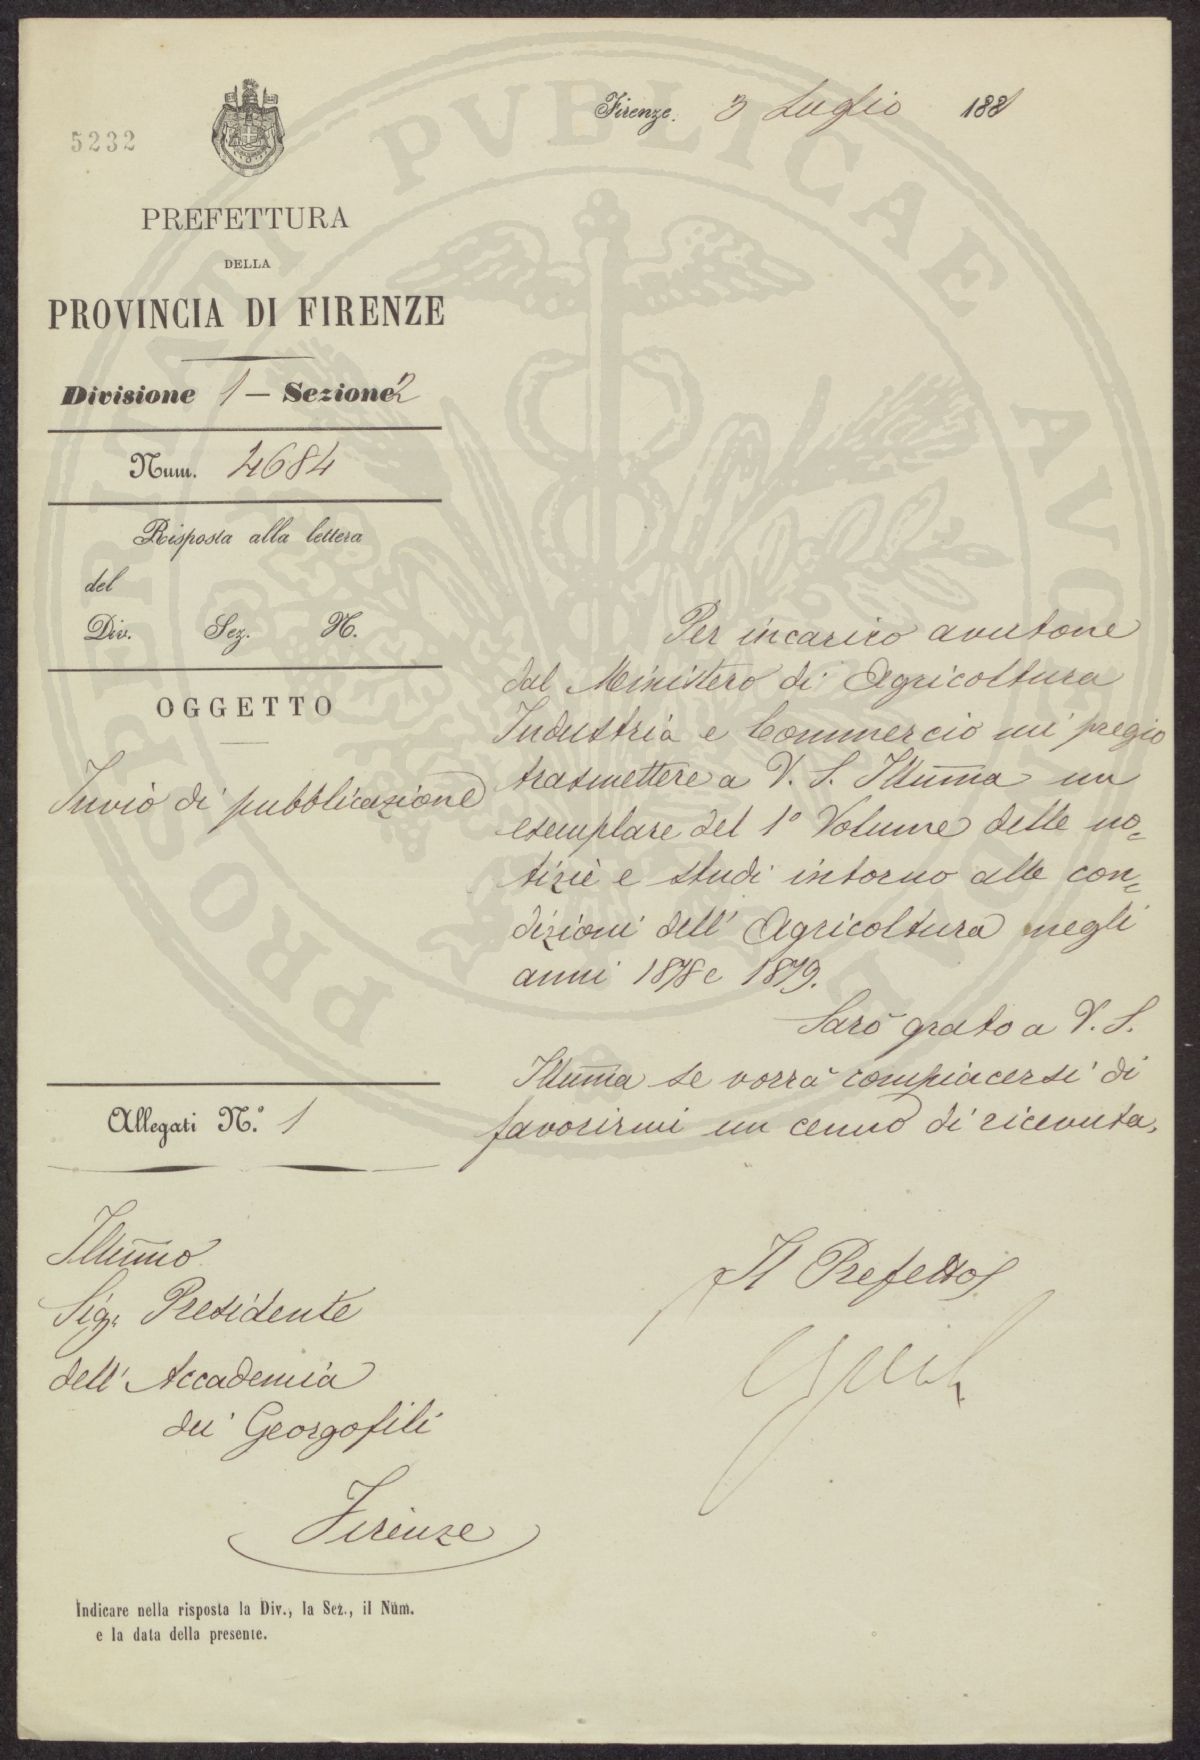 5232
Firenze. 3 Luglio 1881
PREFETTURA
DELLA
PROVINCIA DI FIRENZE
Divisione 1 — Sezione 2
Num. 4684
Risposta alla lettera
del
Div. Sez. N.
OGGETTO
Invio di pubblicazione
Allegati N.° 1
Per incarico avutone
dal Ministero di Agricoltura
Industria e Commercio mi pregio
trasmettere a V. S. Illuma un
esemplare del 1° Volume delle no=
tizie e studi intorno alle con=
dizioni dell' Agricoltura negli
anni 1878 e 1879.
Sarò grato a V. S.
Illuma se vorrà compiacersi di
favorirmi un cenno di ricevuta.
Il Prefetto
Illumo
Sigr Presidente
dell' Accademia
dei Georgofili
Firenze
Indicare nella risposta la Div., la Sez., il Num.
e la data della presente.
PROSPERITATI PVBLICAE AVGENDAE